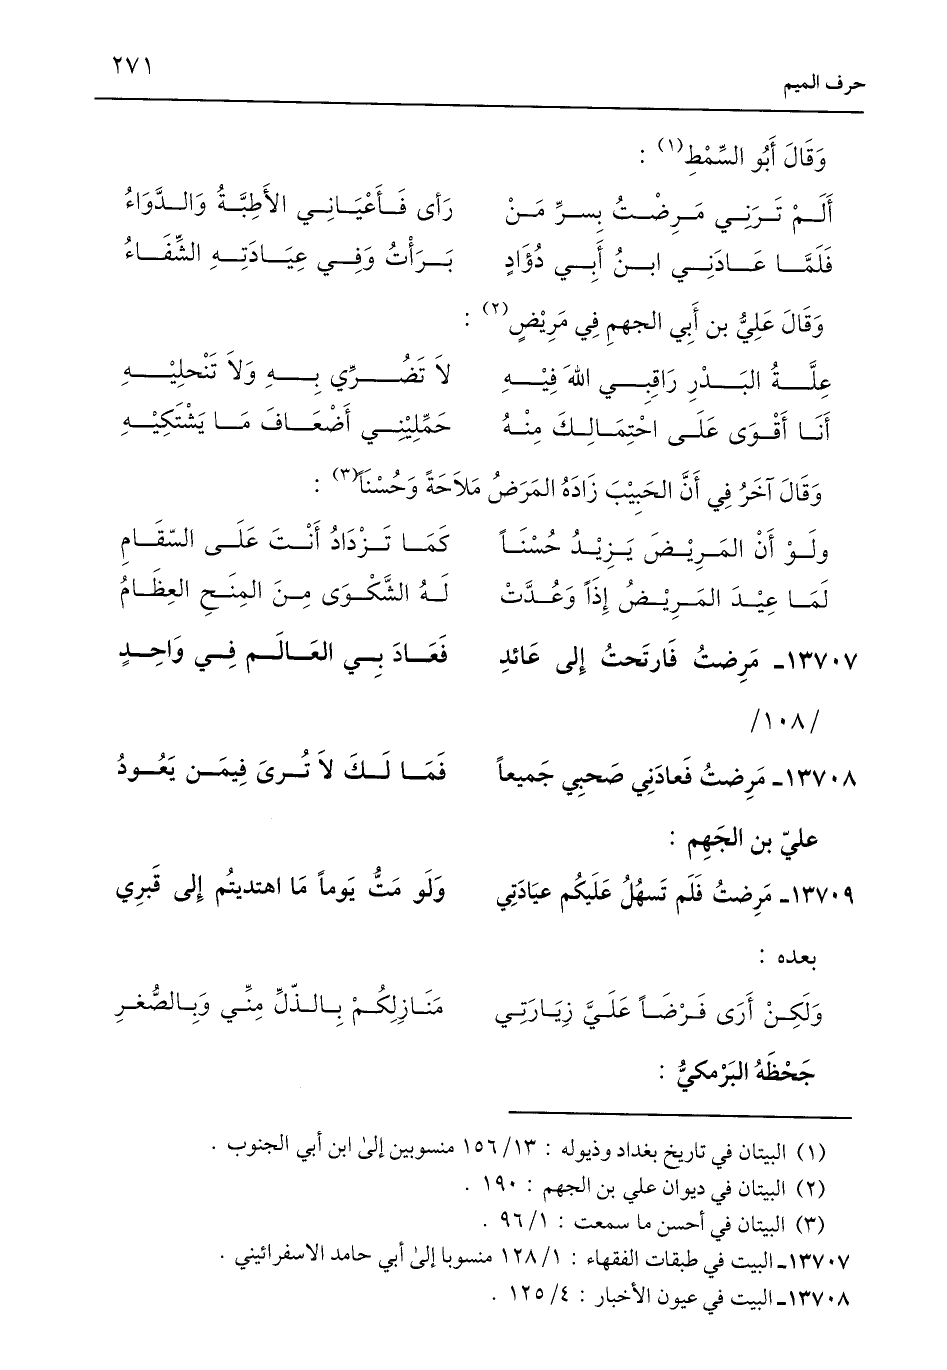 حرف الميم ٢٧١
وَقَالَ أَبُو السِّمْطِ(١) :
أَلَمْ تَرَنِي مَرِضْتُ بِسرِّ مَنْ رَأى فَأَعْيَانِي الأَطِبَّةُ وَالدَّوَاءُ
فَلَمَّا عَادَنِي ابنُ أَبِي دُؤَادٍ بَرَأْتُ وَفِي عِيَادَتِهِ الشِّفَاءُ
وَقَالَ عَلِيُّ بن أَبِي الجهمِ فِي مَرِيْضٍ(٢) :
عِلَّةُ البَدْرِ رَاقِبِي اللهَ فِيْهِ لاَ تَضُرِّي بِهِ وَلاَ تَنْحلِيْهِ
أَنَا أَقْوَى عَلَى احْتِمَالِكَ مِنْهُ حَمِّلِيْنِي أَضْعَافَ مَا يَشْتَكِيْهِ
وَقَالَ آخَرُ فِي أَنَّ الحَبِيْبَ زَادَهُ المَرَضُ مَلاَحَةً وَحُسْنَاً(٣) :
ولَوْ أَنْ المَرِيْضَ يَزِيْدُ حُسْنَاً كَمَا تَزْدَادُ أَنْتَ عَلَى السّقَامِ
لَمَا عِيْدَ المَرِيْضُ إِذَاً وَعُدَّتْ لَهُ الشَّكْوَى مِنَ المِنَحِ العِظَامُ
١٣٧٠٧ـ مَرِضتُ فَارتَحتُ إِلى عَائدِ فَعَادَ بِي العَالَم فِي وَاحِدٍ
/١٠٨/
١٣٧٠٨ـ مَرِضتُ فَعادَنِي صَحبِي جَميعاً فَمَا لَكَ لاَ تُرىَ فِيمَن يَعُودُ
عليّ بن الجَهِم :
١٣٧٠٩ـ مَرِضتُ فَلَم تَسهُلُ عَلَيكُم عيَادَتِي وَلَو مَتُّ يَوماً مَا اهتديتُم إِلى قَبرِي
بعده :
وَلَكِنْ أَرَى فَرْضَاً عَلَيَّ زِيَارَتِي مَنَازِلِكُمْ بِالذّلِّ مِنِّي وَبِالصُّغرِ
جَحْظَهُ البَرْمكيُّ :
(١) البيتان في تاريخ بغداد وذيوله : ١٣/ ١٥٦ منسوبين إلىٰ ابن أبي الجنوب .
(٢) البيتان في ديوان علي بن الجهم : ١٩٠ .
(٣) البيتان في أحسن ما سمعت : ١/ ٩٦ .
١٣٧٠٧ـ البيت في طبقات الفقهاء : ١/ ١٢٨ منسوبا إلىٰ أبي حامد الاسفرائيني .
١٣٧٠٨ـ البيت في عيون الأخبار : ٤/ ١٢٥ .